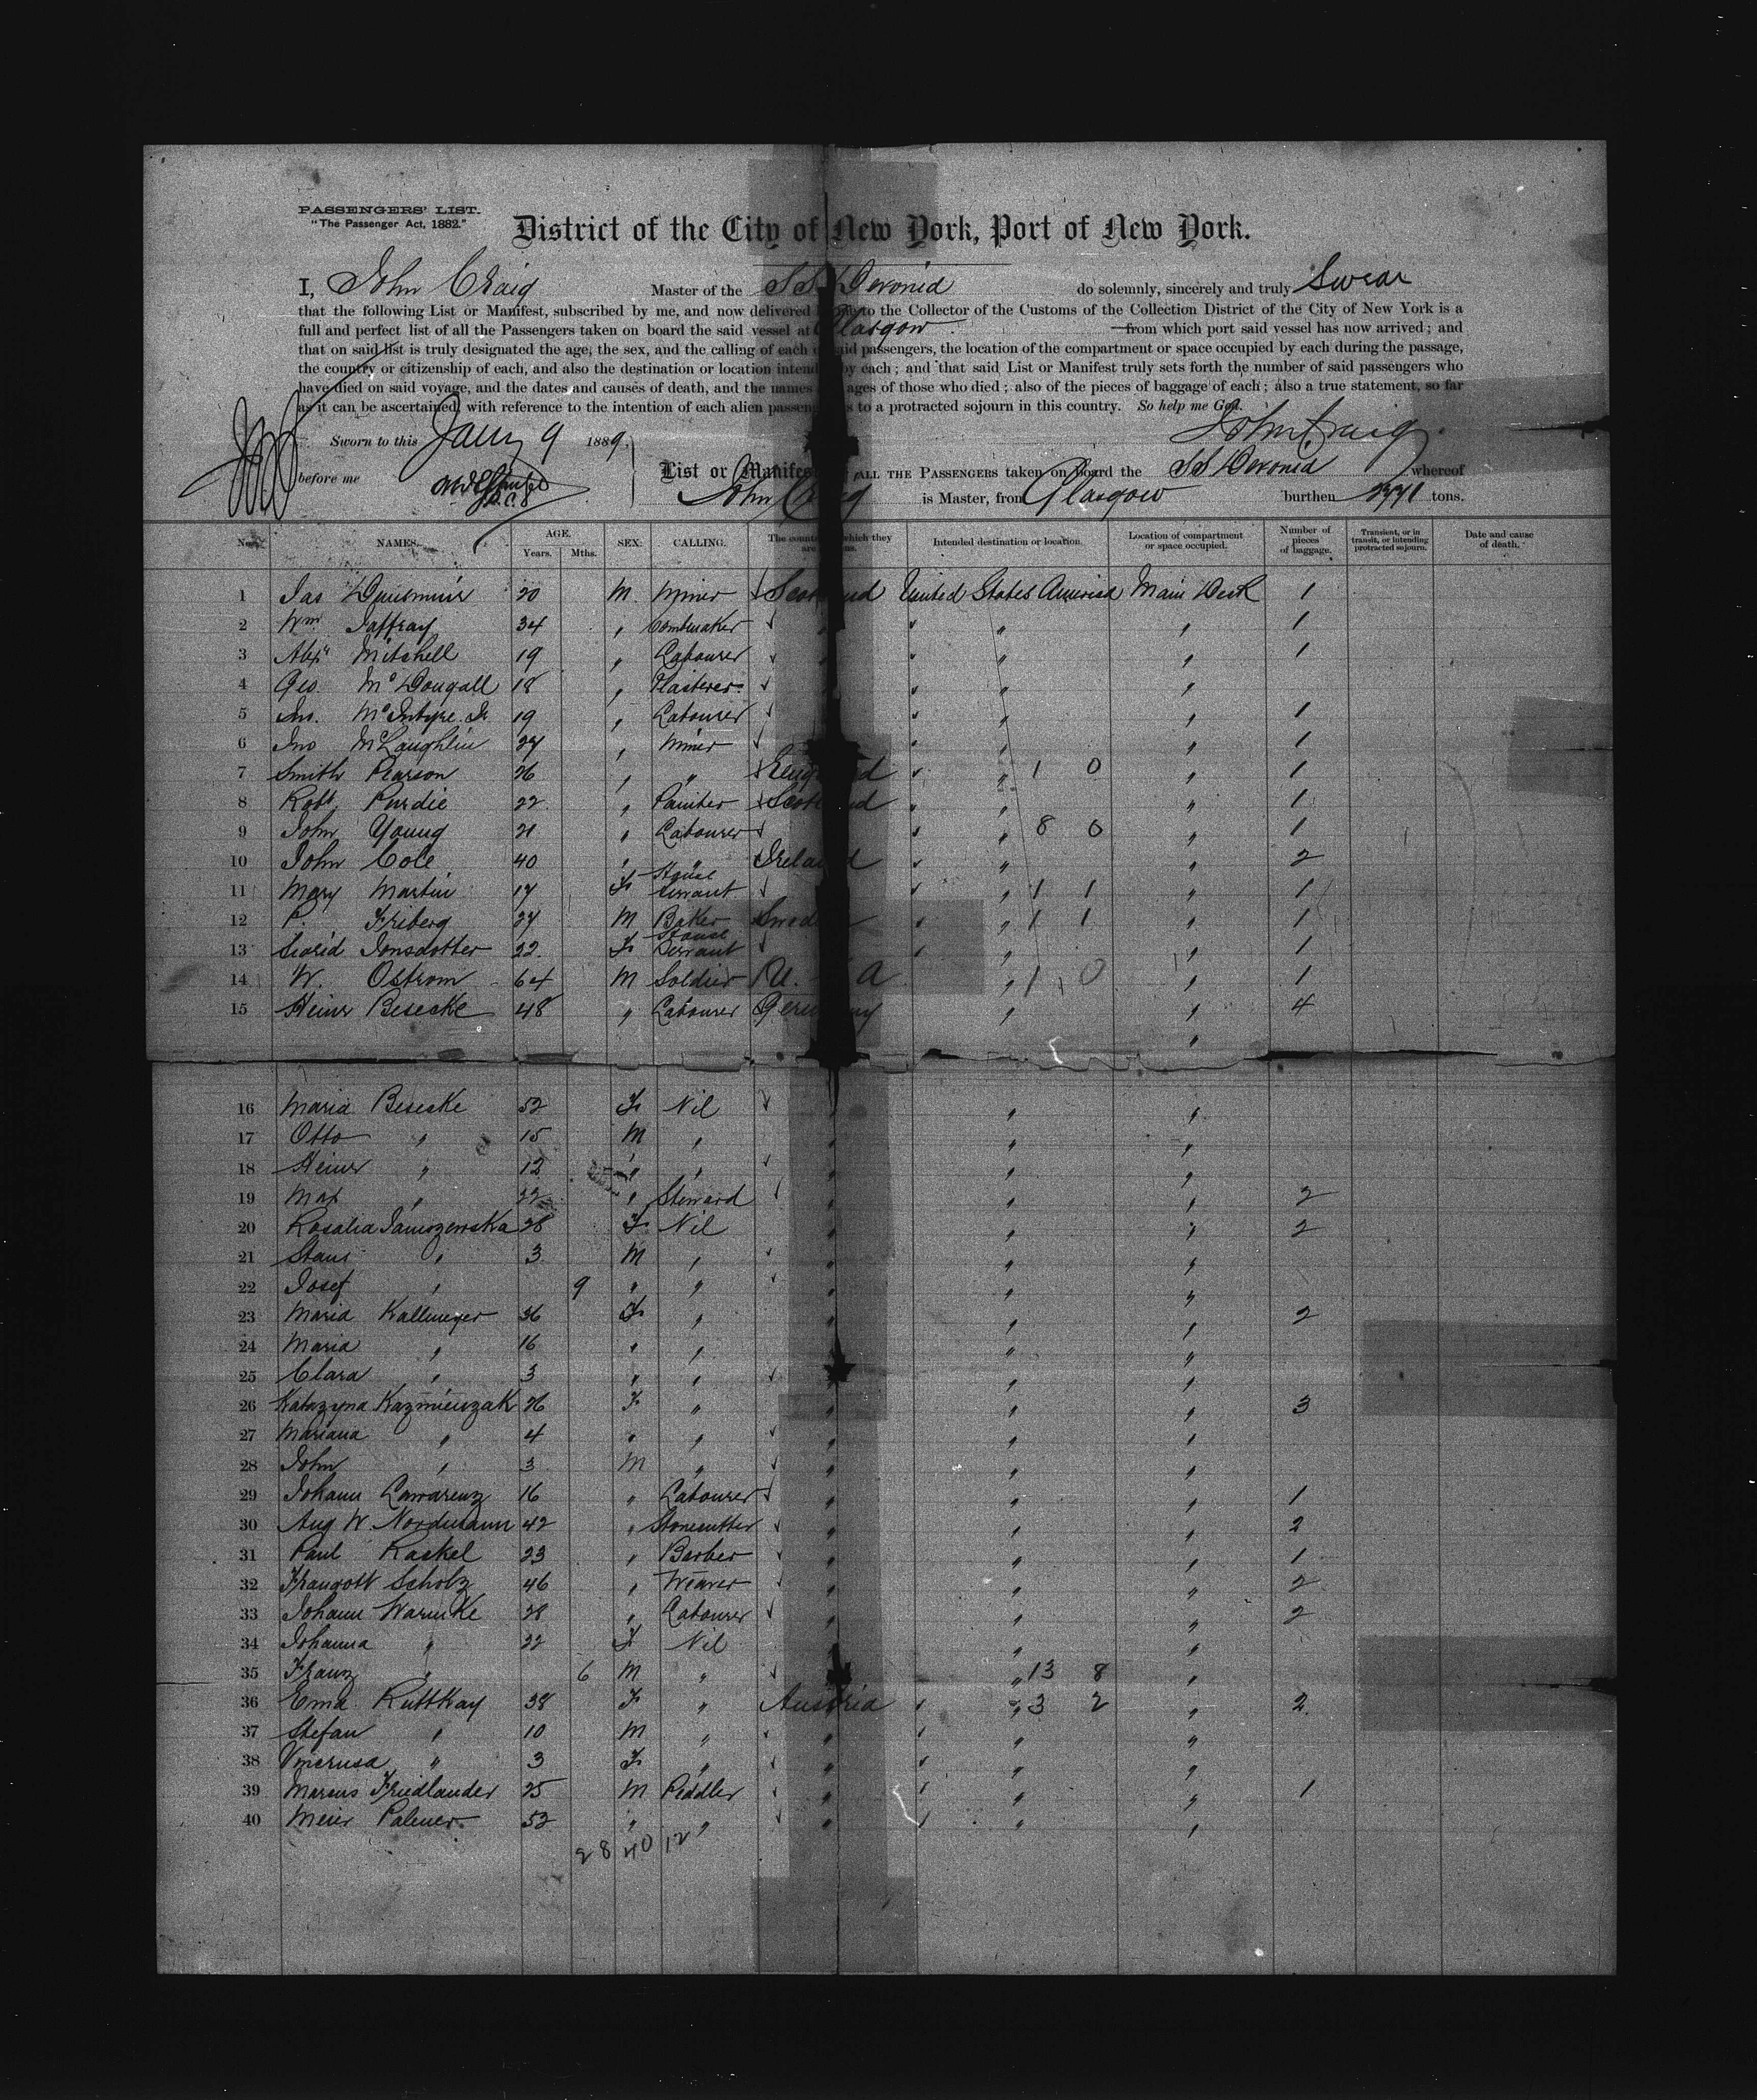 PASSENGERS' LIST.
"The Passenger Act, 1882."
District of the City of New York, Port of New York.
I, John Craig Master of the SS Devonia do solemnly, sincerely and truly Swear
that the following List or Manifest, subscribed by me, and now delivered to the Collector of the Customs of the Collection District of the City of New York is a
full and perfect list of all the Passengers taken on board the said vessel at Glasgow from which port said vessel has now arrived; and
that on said list is truly designated the age, the sex, and the calling of each said passengers, the location of the compartment or space occupied by each during the passage,
the country or citizenship of each, and also the destination or location intend by each; and that said List or Manifest truly sets forth the number of said passengers who
have died on said voyage, and the dates and causes of death, and the names ages of those who died; also of the pieces of baggage of each; also a true statement, so far
as it can be ascertained, with reference to the intention of each alien passen s to a protracted sojourn in this country. So help me God.
John Craig
Sworn to this Jany 9 1889.
before me
List or Manifes ALL THE PASSENGERS taken on board the SS Devonia whereof
John Craig is Master, from Glasgow burthen 2771 tons.
No. NAMES. AGE. Years. Mths. SEX. CALLING. The count which they are ns. Intended destination or location. Location of compartment or space occupied. Number of pieces of baggage. Transient, or in transit, or intending protracted sojourn. Date and cause of death.
1 Jas Dunsmuir 20 M Miner Scotland United States America Main Deck 1
2 Wm Jaffray 34 " Combmaker " " " 1
3 Alexr Mitchell 19 " Labourer " " " 1
4 Geo. McDougall 18 " Plasterer " " "
5 Jno. McIntyre Jr 19 " Labourer " " " 1
6 Jno McLaughlin 27 " Miner " " " 1
7 Smith Pearson 26 " " England " 1 0 " 1
8 Robt Purdie 22 " Painter Scotland " " 1
9 John Young 21 " Labourer " 8 0 " 1
10 John Cole 40 " " Ireland " " 2
11 Mary Martin 17 F House Servant " 1 1 " 1
12 P. Friberg 27 M Baker Swed " 1 1 " 1
13 Sigrid Jonsdotter 22 F House Servant " " 1
14 W. Ostrom 64 M Soldier U. A " 1 0 " 1
15 Heinr Besecke 48 " Labourer Germany " " 4
16 Maria Besecke 52 F Nil " "
17 Otto " 15 M " " " "
18 Heinr " 12 " " " "
19 Max " 22 " Steward " " " 2
20 Rosalia Januszewska 28 F Nil " " " 2
21 Stani " 3 M " " " "
22 Josef " 9 " " " " "
23 Maria Kallmeyer 36 F " " " " 2
24 Maria " 16 " " " "
25 Clara " 3 " " " "
26 Katazyna Kazmierczak 26 F " " " " 3
27 Mariana " 4 " " " " "
28 John " 3 M " " " "
29 Johann Lawarenz 16 " Labourer " " " 1
30 Aug W. Nordmann 42 " Stonecutter " " " 2
31 Paul Kaskel 23 " Barber " " " 1
32 Traugott Scholz 46 " Weaver " " " 2
33 Johann Warmke 28 " Labourer " " " 2
34 Johanna " 22 F Nil " "
35 Franz " 6 M " " 13 8 "
36 Ema Ruttkay 38 F " Austria " 3 2 " 2
37 Stefan " 10 M " " " "
38 " 3 F " " " "
39 Marcus Friedlander 25 M Peddler " " " 1
40 Meier Palmer 52 " " " " "
28 40 12